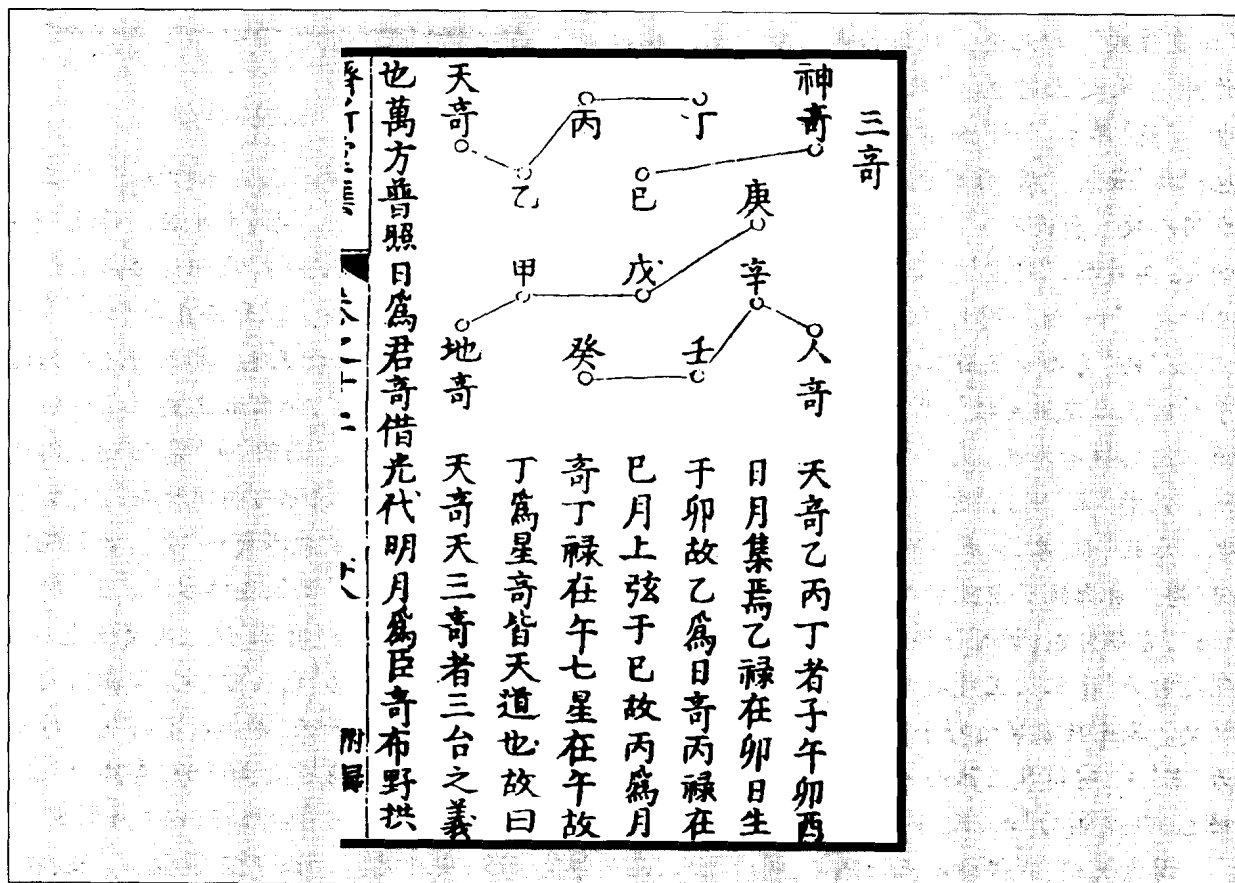 三奇
神奇
丁
丙
天奇
乙
巳
庚
甲
戊
辛
地奇
癸
壬
人奇
天奇乙丙丁者子午卯酉
日月集焉乙禄在卯日生
于卯故乙爲日奇丙禄在
巳月上弦于巳故丙爲月
奇丁禄在午七星在午故
丁爲星奇皆天道也故曰
天奇天三奇者三台之義
也萬方普照日爲君奇借光代明月爲臣奇布野拱
卷之十二
附錄